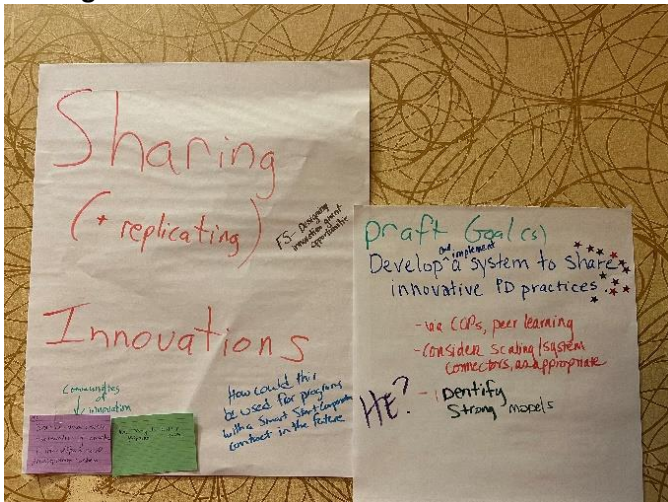 Sharing
(+ replicating)
FS- Designing
innovation grant
opportunities
Innovations
Communities
of
innovation
How could this
be used for programs
with a Smart Start
contract in the future
Draft Goal(s)
and implement
Develop ^ a system to share
innovative PD practices
- via COPs, peer learning
- Consider scaling/system
connectors, as appropriate
HE?
- identify
Strong models